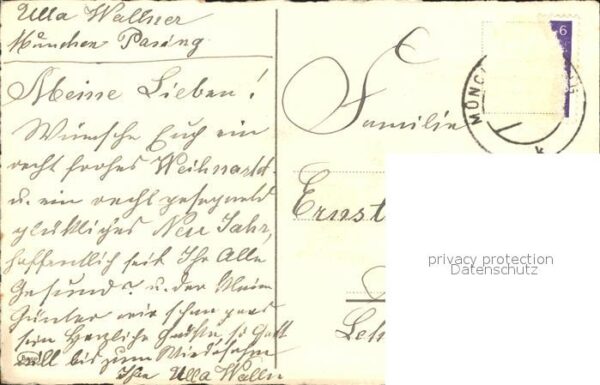 Ulla Wallner
München Pasing
Meine Lieben!
Wünsche Euch ein
recht frohes Weihnacht.
u. ein recht gesegnet
glückliches Neu Jahr,
hoffentlich seit Ihr Alle
Gesund? u. der Kleine
Günter
ein Herzliche Grüße, so Gott
will bis zum Wiedersehn
Ihre Ulla Walln
Familie
Ernst
Leh
MÜNC
6
privacy protection
Datenschutz